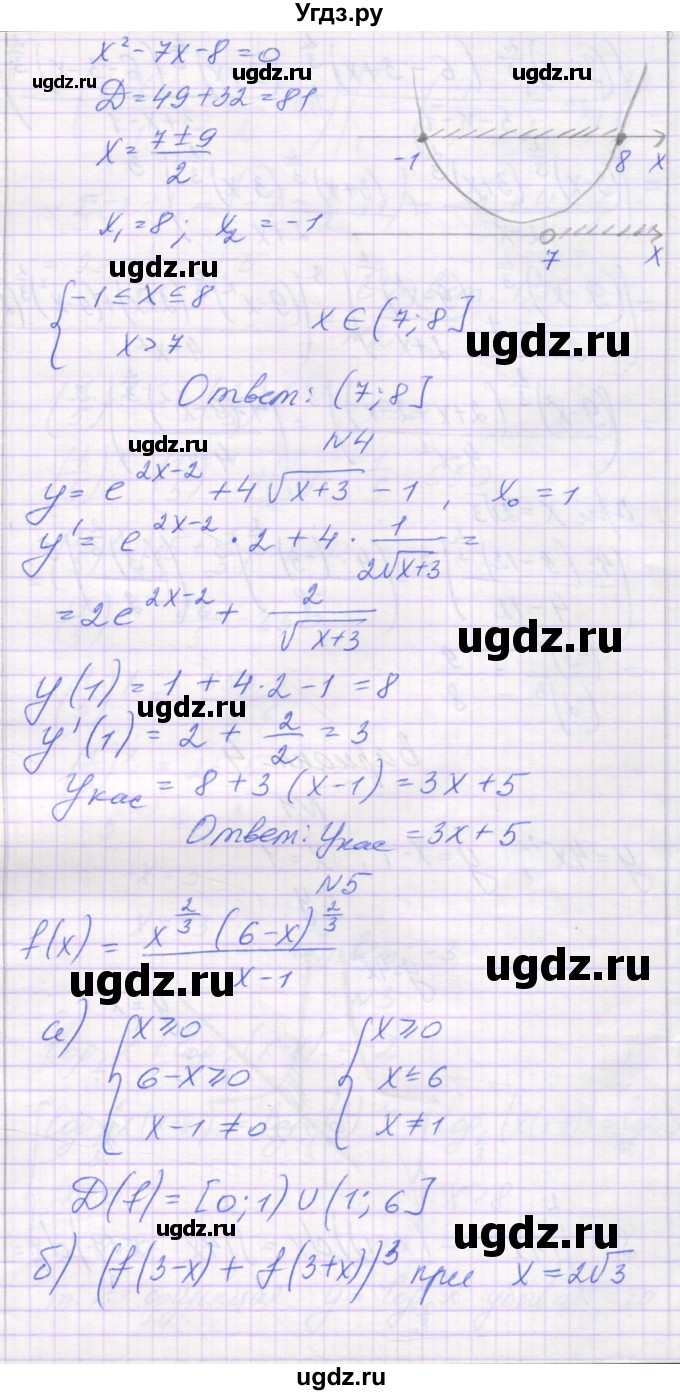 Угдз.ру
x² - 7x - 8 = 0
ugdz.ru
ugdz.ru
D = 49 + 32 = 81
x = (7 ± 9)/2
-1 8 x
x₁ = 8; x₂ = -1
7 x
ugdz.ru
{ -1 ≤ x ≤ 8
x > 7
x ∈ (7; 8]
ugdz.ru
Ответ: (7; 8]
N4
ugdz.ru
y = e^(2x-2) + 4√(x+3) - 1, x₀ = 1
y' = e^(2x-2) · 2 + 4 · 1/(2√(x+3)) =
= 2e^(2x-2) + 2/√(x+3)
ugdz.ru
y(1) = 1 + 4·2 - 1 = 8
ugdz.ru
y'(1) = 2 + 2/2 = 3
yкас = 8 + 3(x-1) = 3x + 5
Ответ: yкас = 3x + 5
ugdz.ru
N5
f(x) = x^(2/3) (6-x)^(2/3) / x-1
ugdz.ru
ugdz.ru
а) { x ≥ 0 { x ≥ 0
6 - x ≥ 0 x ≤ 6
x - 1 ≠ 0 x ≠ 1
D(f) = [0; 1) ∪ (1; 6]
ugdz.ru
ugdz.ru
б) (f(3-x) + f(3+x))³ при x = 2√3
ugdz.ru